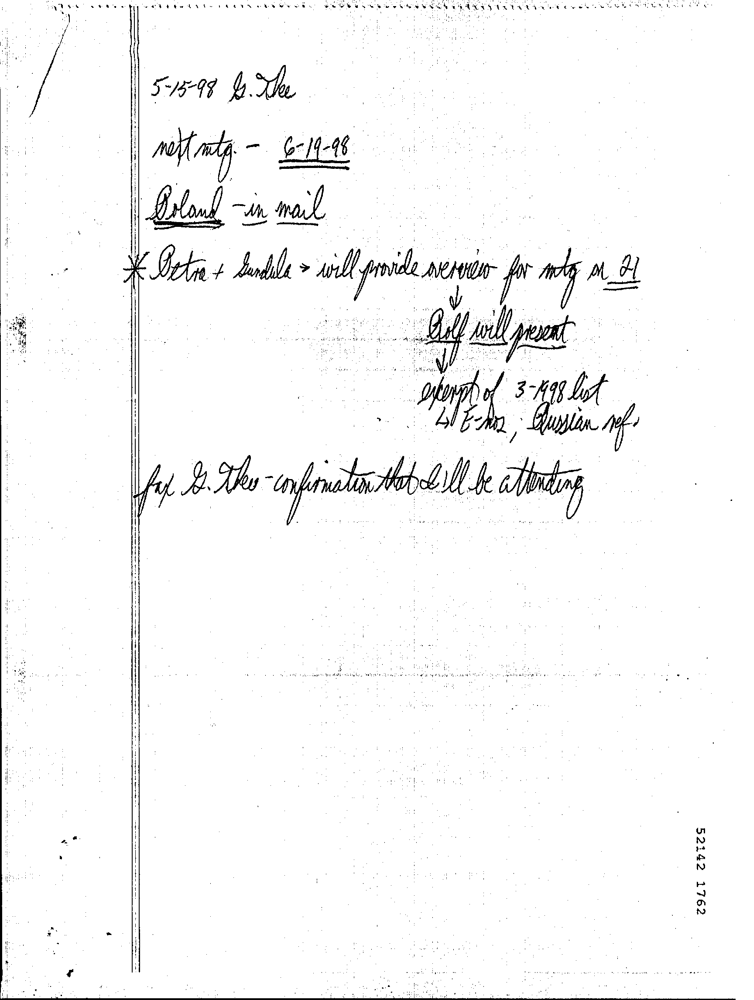 5-15-98 G. Theo
next mtg. - 6-19-98
Roland - in mail
* Petra + Gundula > will provide overview for mtg on 21
↓
Rolf will present
↓
excerpt of 3-1998 list
↳ E-nos, Russian ref.
fax G. Theo - confirmation that I'll be attending
52142 1762